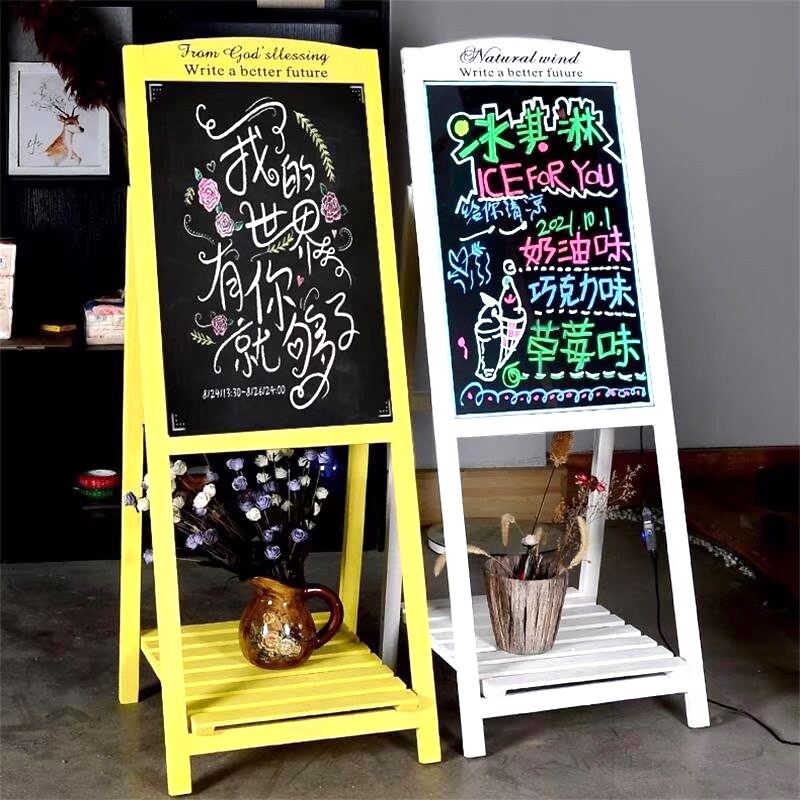 From God'sllessing
Write a better future
我的
世界
有你
就够了
8/24/13:30-8/26/24:00
Natural wind
Write a better future
冰淇淋
ICE FOR YOU
给你清凉
2021.10.1
奶油味
巧克力味
草莓味